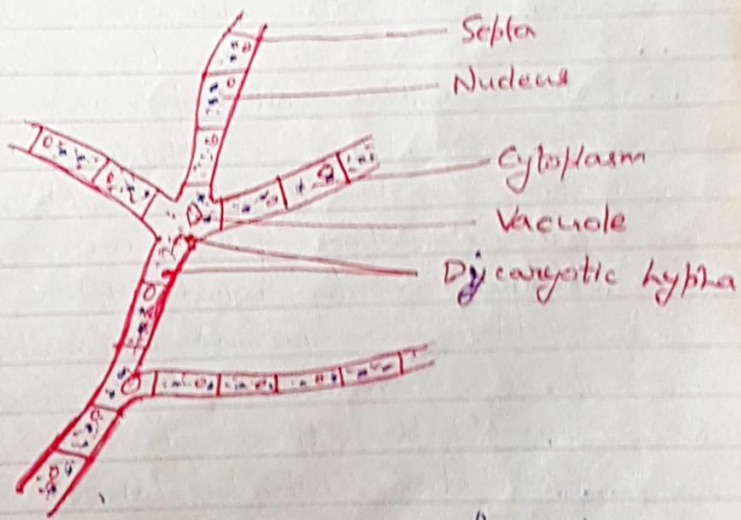 Septa
Nucleus
Cytoplasm
Vacuole
Dycaryotic hypha